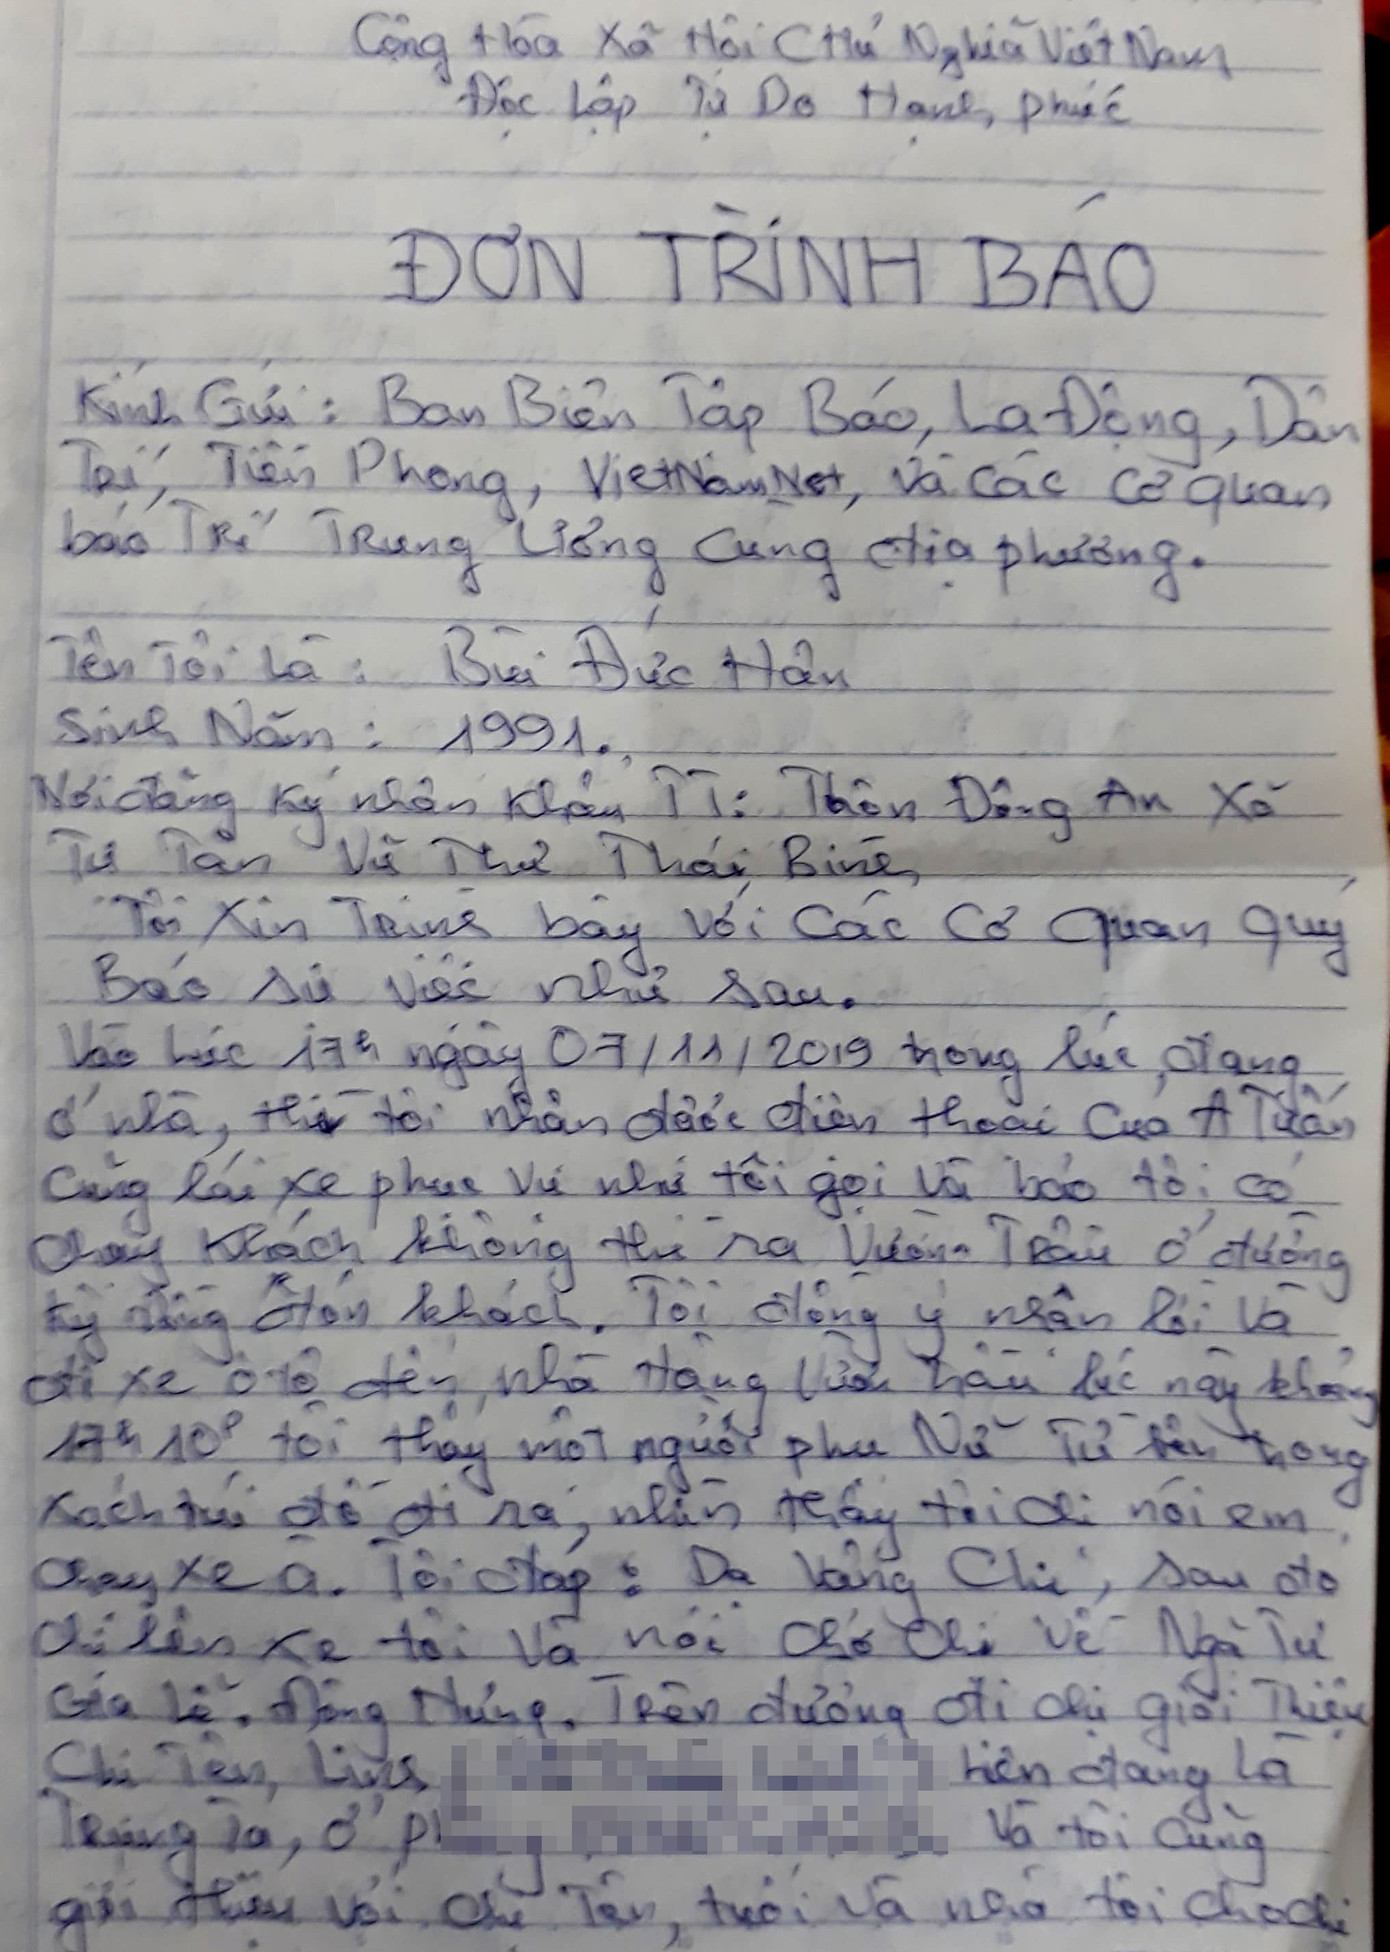 Cộng Hòa Xã Hội Chủ Nghĩa Việt Nam
Độc Lập Tự Do Hạnh phúc
ĐƠN TRÌNH BÁO
Kính Gửi: Ban Biên Tập Báo, La Động, Dân
Trí, Tiền Phong, VietNamNet, và các cơ quan
báo Trí Trung Ương cung địa phương.
Tên Tôi Là: Bùi Đức Hân
Sinh Năm: 1991.
Nơi đăng ký nhân khẩu TT: Thôn Đông An Xã
Tự Tân Vũ Thư Thái Bình
Tôi Xin Trình bày với Các Cơ quan quý
Báo sự việc như sau.
Vào lúc 17h ngày 07/11/2019 trong lúc đang
ở nhà, thì tôi nhận được điện thoại của A Tuấn
cũng lái xe phục vụ như tôi gọi và bảo tôi có
chạy khách không thì ra Vườn Trầu ở đường
kỳ đồng đón khách. Tôi đồng ý nhận lời và
đi xe ôtô đến nhà Hàng Vườn trầu lúc này khoảng
17h10p tôi thấy một người phụ Nữ Từ bên trong
xách túi đồ đi ra, nhìn thấy tôi chị nói em
chạy xe à. Tôi đáp: Dạ Vâng Chị, sau đó
chị lên xe tôi và nói chở chị về Ngã Tư
Gia Lễ. Đông Hưng. Trên đường đi chị giới Thiệu
Chị Tên Linh hiện đang là
Trung Tá, ở ph và tôi cũng
giới thiệu với chị Tên, tuổi và nhà tôi cho chị